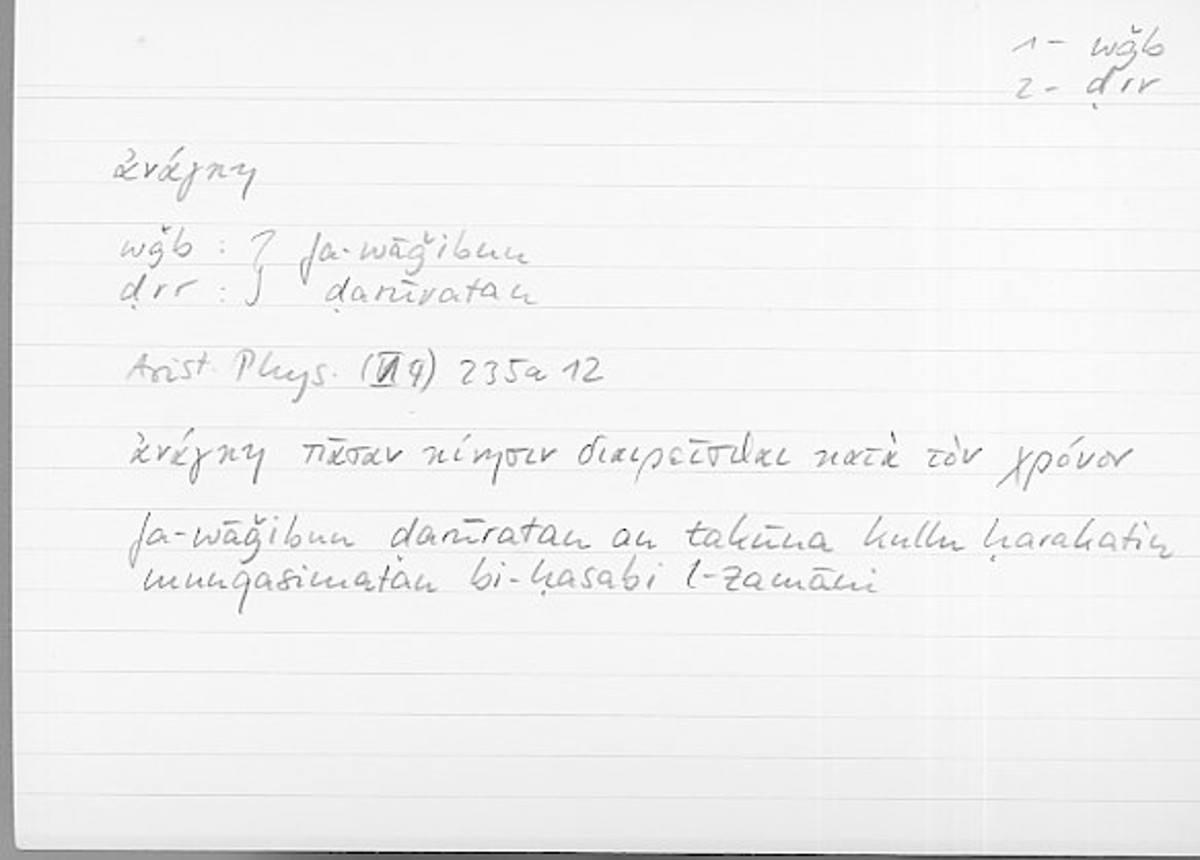 1 - wǧb
2 - ḍrr
ἀνάγκη
wǧb : } fa-wāǧibun
ḍrr : } ḍarūratan
Arist. Phys. (VI 4) 235a 12
ἀνάγκη πᾶσαν κίνησιν διαιρεῖσθαι κατὰ τὸν χρόνον
fa-wāǧibun ḍarūratan an takūna kullu ḥarakatin
munqasimatan bi-ḥasabi l-zamāni